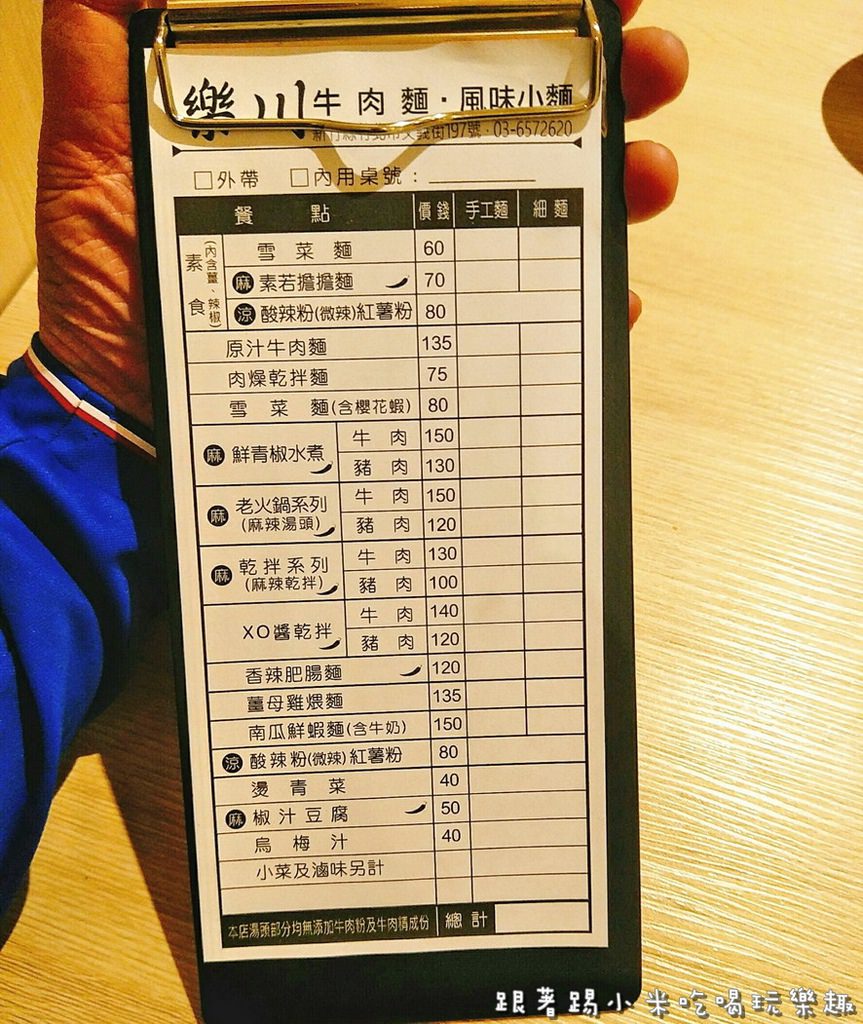 樂川 牛肉麵·風味小麵
新竹縣竹北市文義街197號·03-6572620
□外帶 □內用桌號:
餐點 價錢 手工麵 細麵
素食(內含薑、辣椒)
雪菜麵 60
麻 素若擔擔麵 70
涼 酸辣粉(微辣)紅薯粉 80
原汁牛肉麵 135
肉燥乾拌麵 75
雪菜麵(含櫻花蝦) 80
麻 鮮青椒水煮 牛肉 150
豬肉 130
麻 老火鍋系列(麻辣湯頭) 牛肉 150
豬肉 120
麻 乾拌系列(麻辣乾拌) 牛肉 130
豬肉 100
XO醬乾拌 牛肉 140
豬肉 120
香辣肥腸麵 120
薑母雞煨麵 135
南瓜鮮蝦麵(含牛奶) 150
涼 酸辣粉(微辣)紅薯粉 80
燙青菜 40
麻 椒汁豆腐 50
烏梅汁 40
小菜及滷味另計
本店湯頭部分均無添加牛肉粉及牛肉精成份 總計
跟著踢小米吃喝玩樂趣